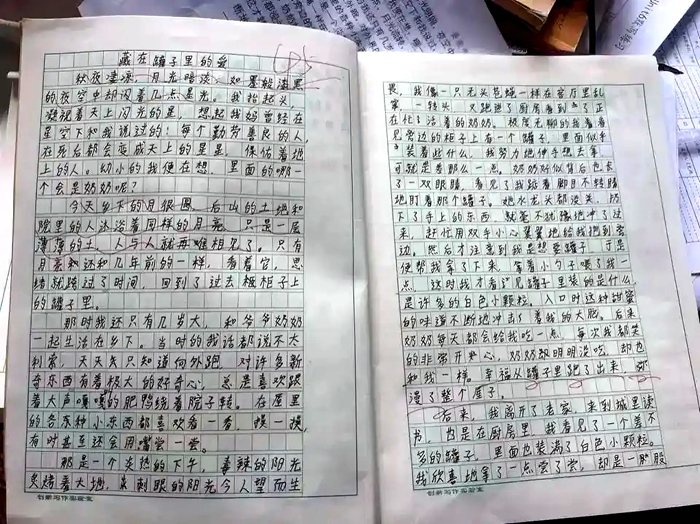 藏在罐子里的爱
秋夜凄凉，月光暗淡，如墨般漆黑
的夜空中却闪着几点星光。我抬起头，
凝视着天上闪光的星，想起我妈曾经在
星空下和我说过的：每个勤劳善良的人，
在死后都会变成天上的星星，保佑着地
上的人。幼小的我便在想，里面的哪一
个会是奶奶呢？
今天乡下的月很圆，后山的土地和
院里的人还浴着同样的月亮，只是一层
薄薄的土，人与人就再难相见了。只有
月亮还和几年前的一样，看着它，思
绪就跳过了时间，回到了过去柜子上
的罐子里。
那时我还只有几岁大，和爷爷奶奶
一起生活在乡下。当时的我话都说不大
利索，天天只知道向外跑，对许多新
奇东西有着极大的好奇心，总是喜欢跟
着大声嘎嘎的肥鸭绕着院子转。在屋里
的各种小东西都喜欢看一看，摸一摸，
有时甚至还会用嘴尝一尝。
那是一个炎热的下午，毒辣的阳光
炙烤着大地，刺眼的阳光令人望而生
畏，我像一只无头苍蝇一样在客厅里乱
窜，一转头，又跑进了厨房看到了正
在忙活着的奶奶，极度无聊的我看着
见旁边的柜子上有一个罐子，里面似乎
装着些什么，我努力地伸手想去拿，
可就是差那么一点，奶奶好似背后也长
了一双眼睛，看见了我踮着脚目不转睛
地盯着那个罐子。她水龙头都没关，扔
下了手上的东西，就毫不犹豫地冲了过
来，赶忙用双手小心翼翼地给我抱到旁
边。然后才注意到我是想要罐子，于是
便帮我拿了下来，拿着小勺子喂了我一
点，这时我才看见罐子里装的是什么，
是许多的白色小颗粒。入口时这种甜蜜
的味道不断地冲击了着我的大脑。后来
奶奶每天都会给我吃一点，每次我都笑
的非常开心，奶奶明明没吃，却也
和我一样。幸福从罐子里跑了出来，弥
漫了整个屋子。
后来，我离开了老家，来到城里读
书，也是在厨房里，我看见了一个差不
多的罐子，里面也装满了白色小颗粒。
我欣喜地拿了一点尝了尝，却是一股
创新写作实验室
创新写作实验室